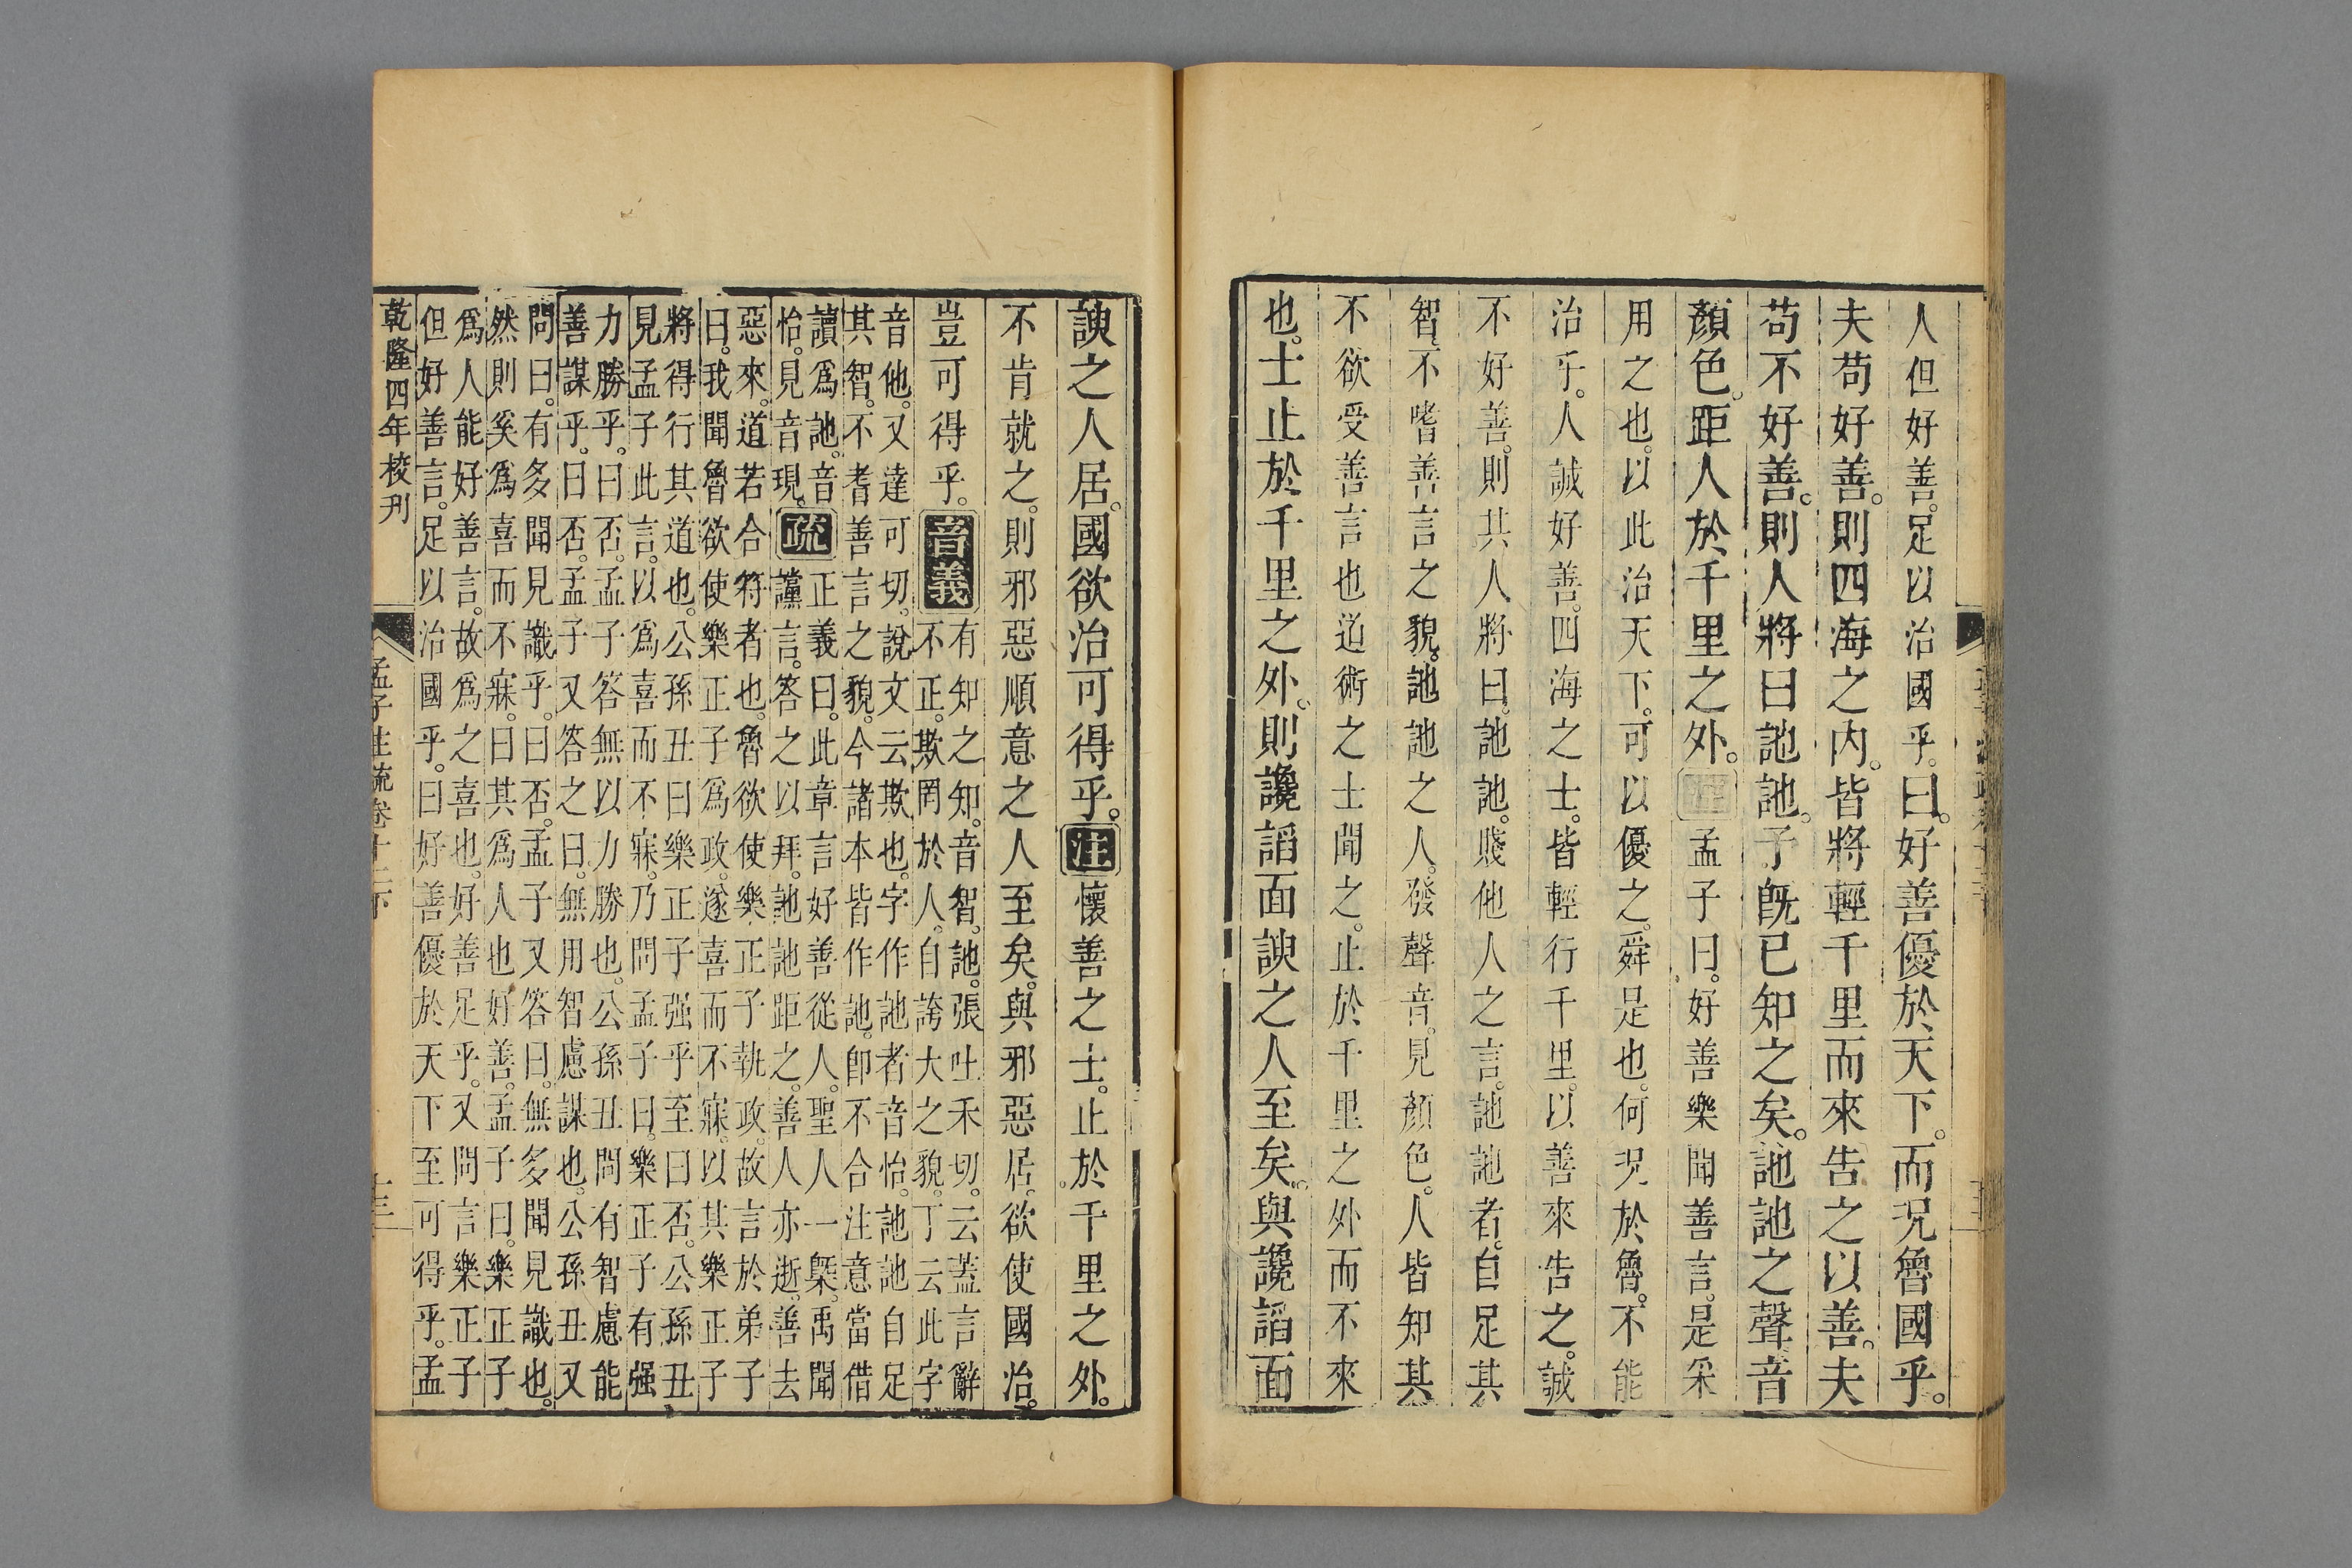 人但好善。足以治國乎。曰。好善優於天下。而况魯國乎。
夫苟好善。則四海之內。皆將輕千里而來告之以善。夫
苟不好善。則人將曰訑訑。予旣已知之矣。訑訑之聲音
顏色。距人於千里之外。注孟子曰。好善樂聞善言。是采
用之也。以此治天下。可以優之。舜是也。何况於魯。不能
治乎。人誠好善。四海之士。皆輕行千里。以善來告之。誠
不好善。則其人將曰。訑訑。賤他人之言。訑訑者。自足其
智。不嗜善言之貌。訑訑之人。發聲音。見顏色。人皆知其
不欲受善言也道術之士聞之。止於千里之外而不來
也。士止於千里之外。則讒諂面諛之人至矣。與讒諂面
諛之人居。國欲治可得乎。注懷善之士。止於千里之外。
不肯就之。則邪惡順意之人至矣。與邪惡居。欲使國治。
豈可得乎。音義
有知之知。音智。訑。張吐禾切。云蓋言辭
不正。欺罔於人。自誇大之貌。丁云此字
音他。又達可切。說文云欺也。字作訑者音怡。訑訑自足
其智。不耆善言之貌。今諸本皆作訑。卽不合注意當借
讀爲訑。音
怡。見音現。疏
正義曰。此章言好善從人。聖人一槩。禹聞
讜言。答之以拜。訑訑距之。善人亦逝。善去
惡來。道若合符者也。魯欲使樂正子執政。故言於弟子
曰。我聞魯欲使樂正子爲政。遂喜而不寐。以其樂正子
將得行其道也。公孫丑曰樂正子强乎至曰否。公孫丑
見孟子此言。以爲喜而不寐。乃問孟子曰。樂正子有强
力勝乎。曰否。孟子答無以力勝也。公孫丑問有智慮能
善謀乎。曰否。孟子又答之曰。無用智慮謀也。公孫丑又
問曰。有多聞見識乎。曰否。孟子又答曰。無多聞見識也。
然則奚爲喜而不寐。曰其爲人也好善。孟子曰。樂正子
爲人能好善言。故爲之喜也。好善足乎。又問言樂正子
但好善言。足以治國乎。曰好善優於天下至可得乎。孟
乾隆四年校刋
孟子注疏卷十二下